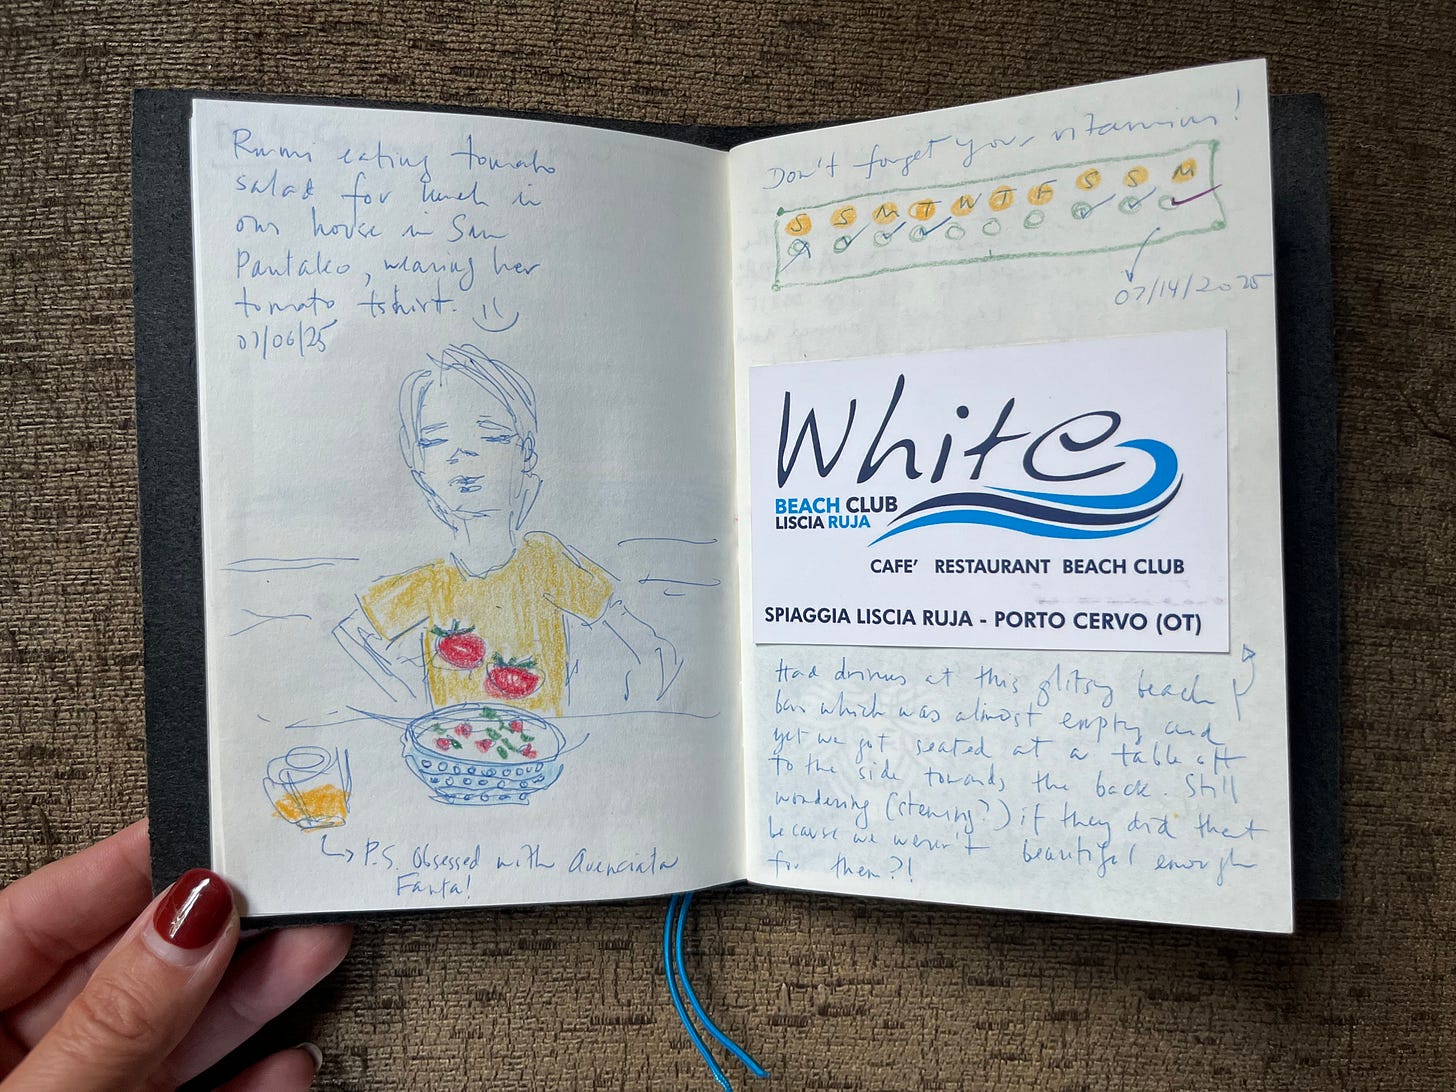 Rumi eating tomato
salad for lunch in
our house in San
Pantaleo, wearing her
tomato tshirt.
07/06/25
P.S. Obsessed with Aranciata
Fanta!
Don't forget your vitamins!
S S M T W T F S S M
07/14/2025
White
BEACH CLUB
LISCIA RUJA
CAFE' RESTAURANT BEACH CLUB
SPIAGGIA LISCIA RUJA - PORTO CERVO (OT)
Had drinks at this glitsy beach
bar which was almost empty and
yet we got seated at a table off
to the side towards the back. Still
wondering (stewing?) if they did that
because we weren't beautiful enough
for them?!